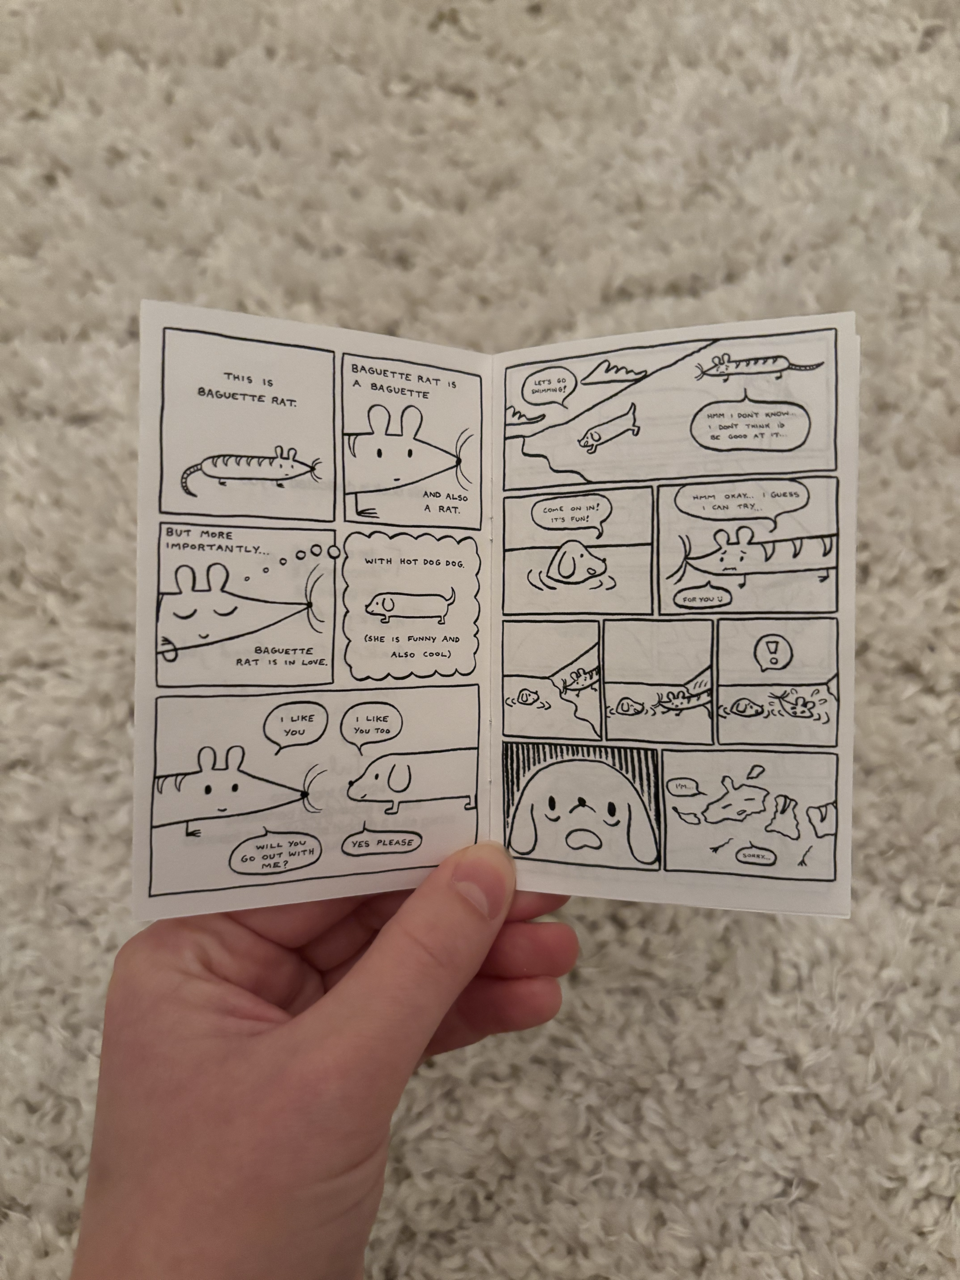 THIS IS
BAGUETTE RAT.
BAGUETTE RAT IS
A BAGUETTE
AND ALSO
A RAT.
BUT MORE
IMPORTANTLY...
BAGUETTE
RAT IS IN LOVE.
WITH HOT DOG DOG.
(SHE IS FUNNY AND
ALSO COOL)
I LIKE
YOU
I LIKE
YOU TOO
WILL YOU
GO OUT WITH
ME?
YES PLEASE
LET'S GO
SWIMMING!
HMM I DON'T KNOW...
I DON'T THINK I'D
BE GOOD AT IT...
COME ON IN!
IT'S FUN!
HMM OKAY... I GUESS
I CAN TRY...
FOR YOU :)
!
I'M...
SORRY...